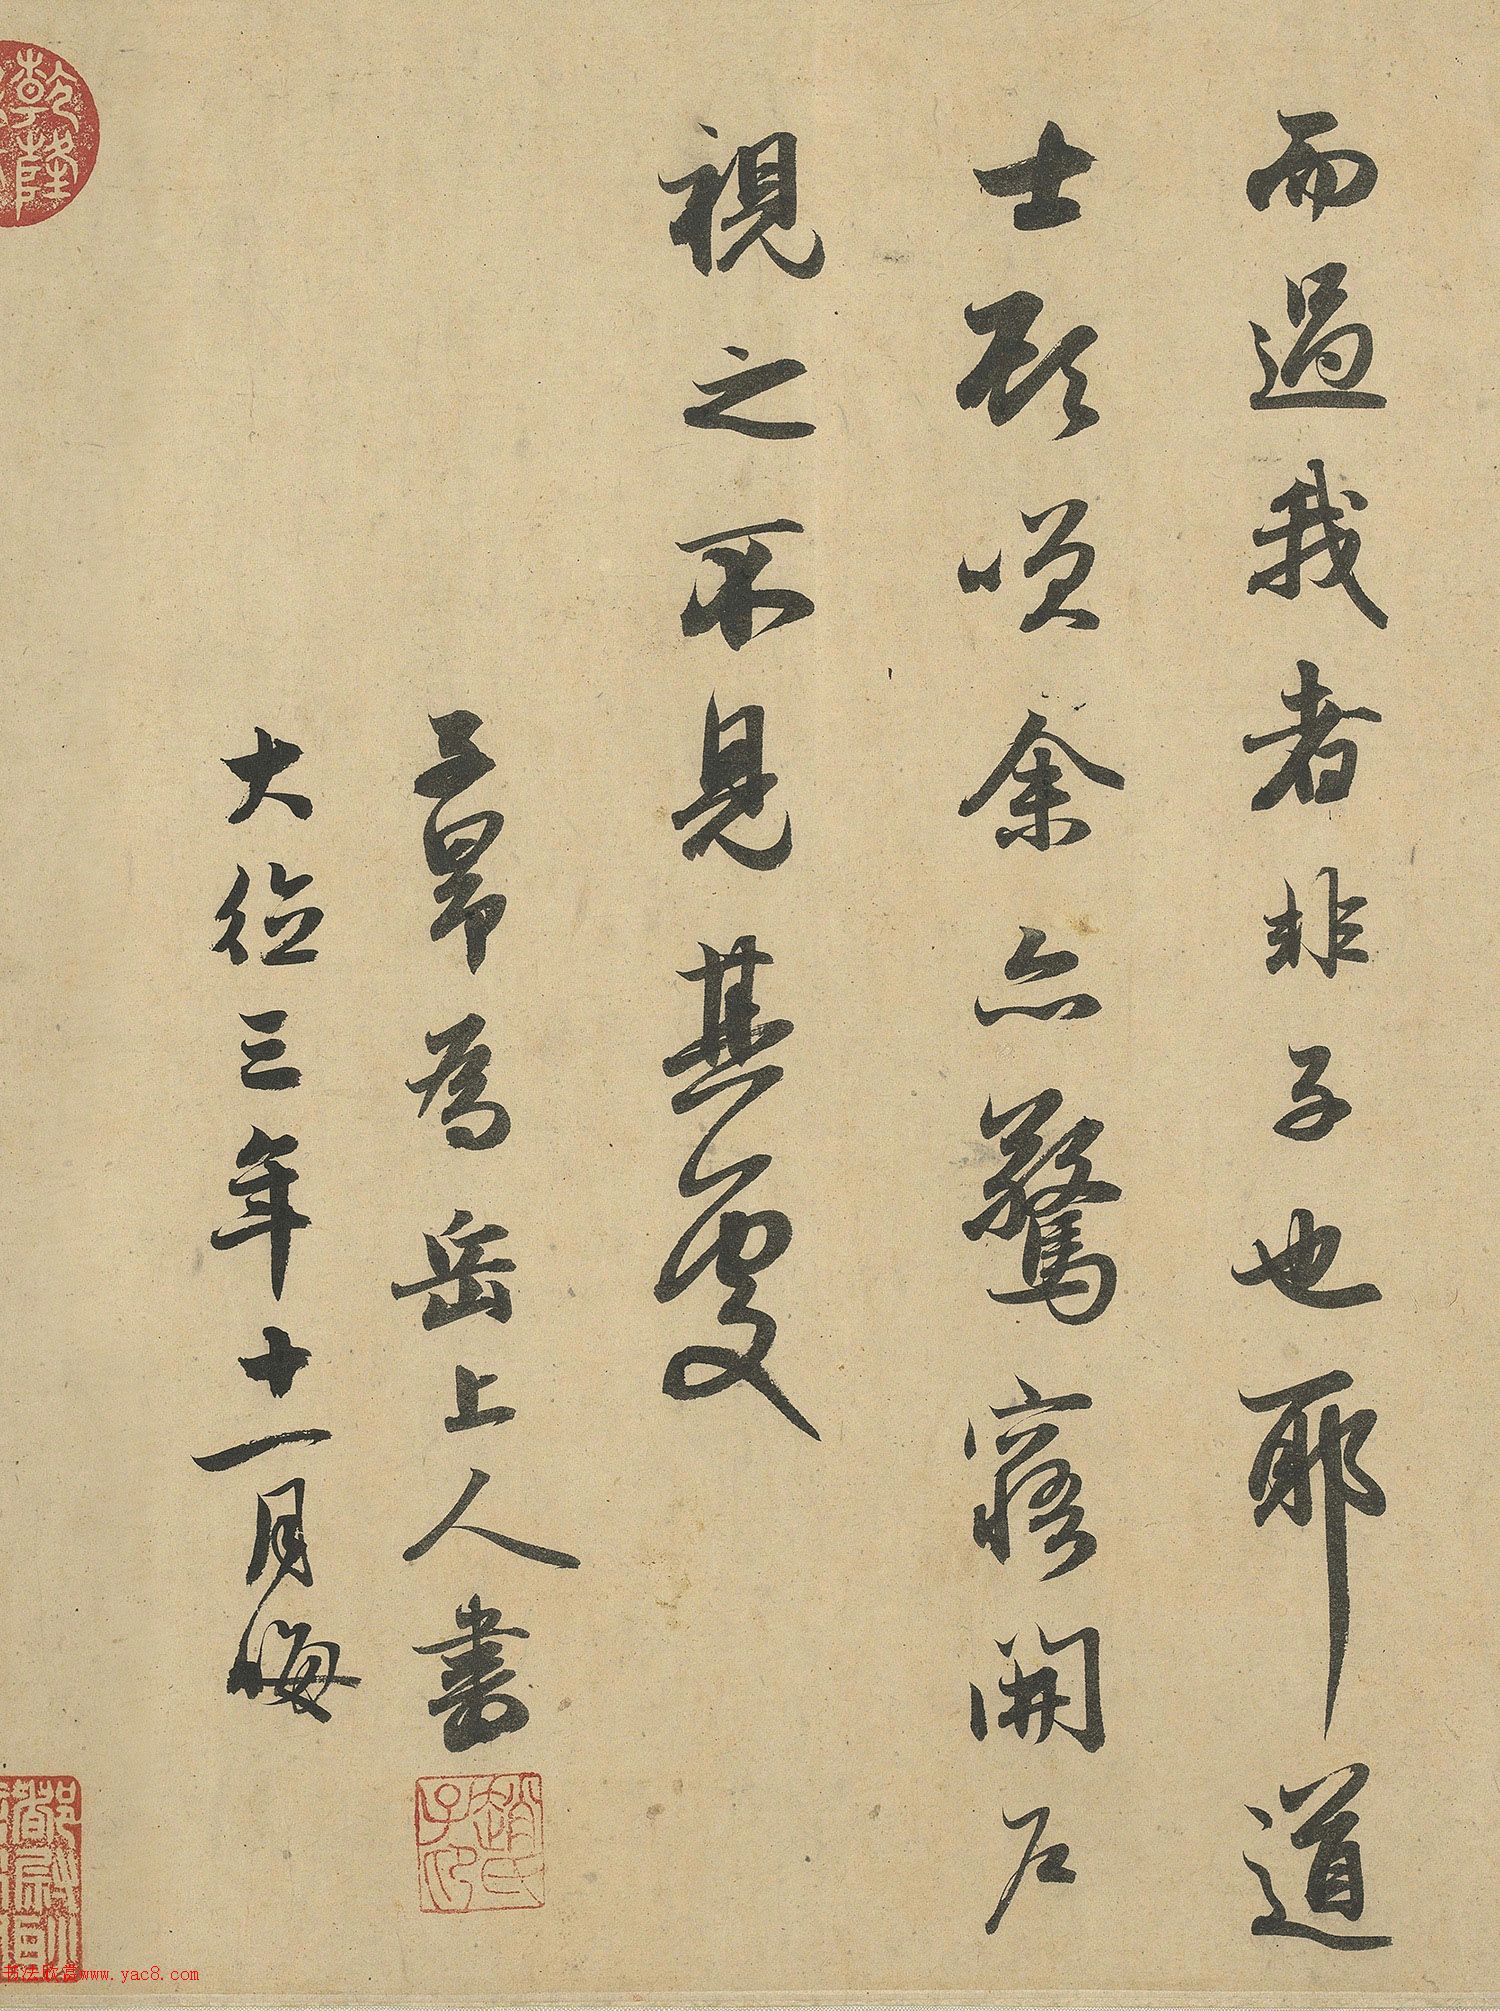 而過我者非子也耶道
士顧笑余亦驚寤開户
視之不見其處
子昂為岳上人書
大德三年十一月晦
趙氏子印
乾隆
书法欣赏www.yac8.com